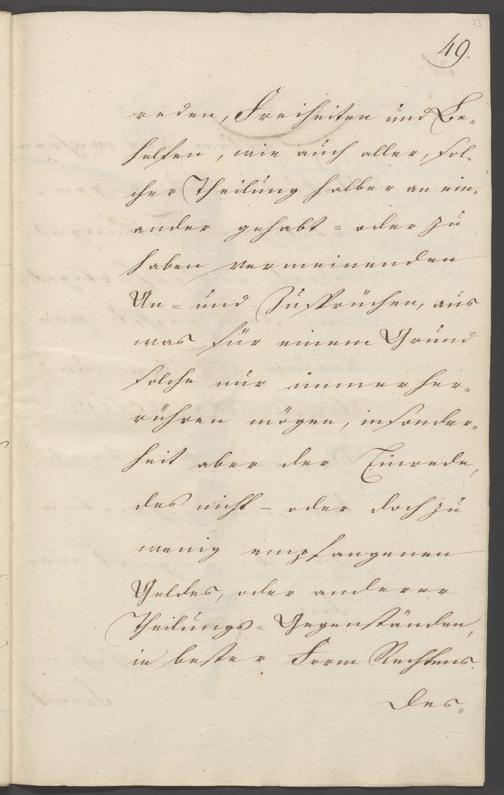 73
49.
reden, Freiheiten und Be-
helfen, wie auch aller, sol-
cher Theilung halber an ein-
ander gehabt = oder zu
haben vermeinenden
An = und Zusprüchen, aus
was für einem Grund
solche nur immer her-
rühren mögen, insonder-
heit aber der Einrede,
des nicht - oder doch zu
wenig empfangenen
Geldes, oder anderer
Theilungs = Gegenständen,
in bester Form Rechtens.
Des-